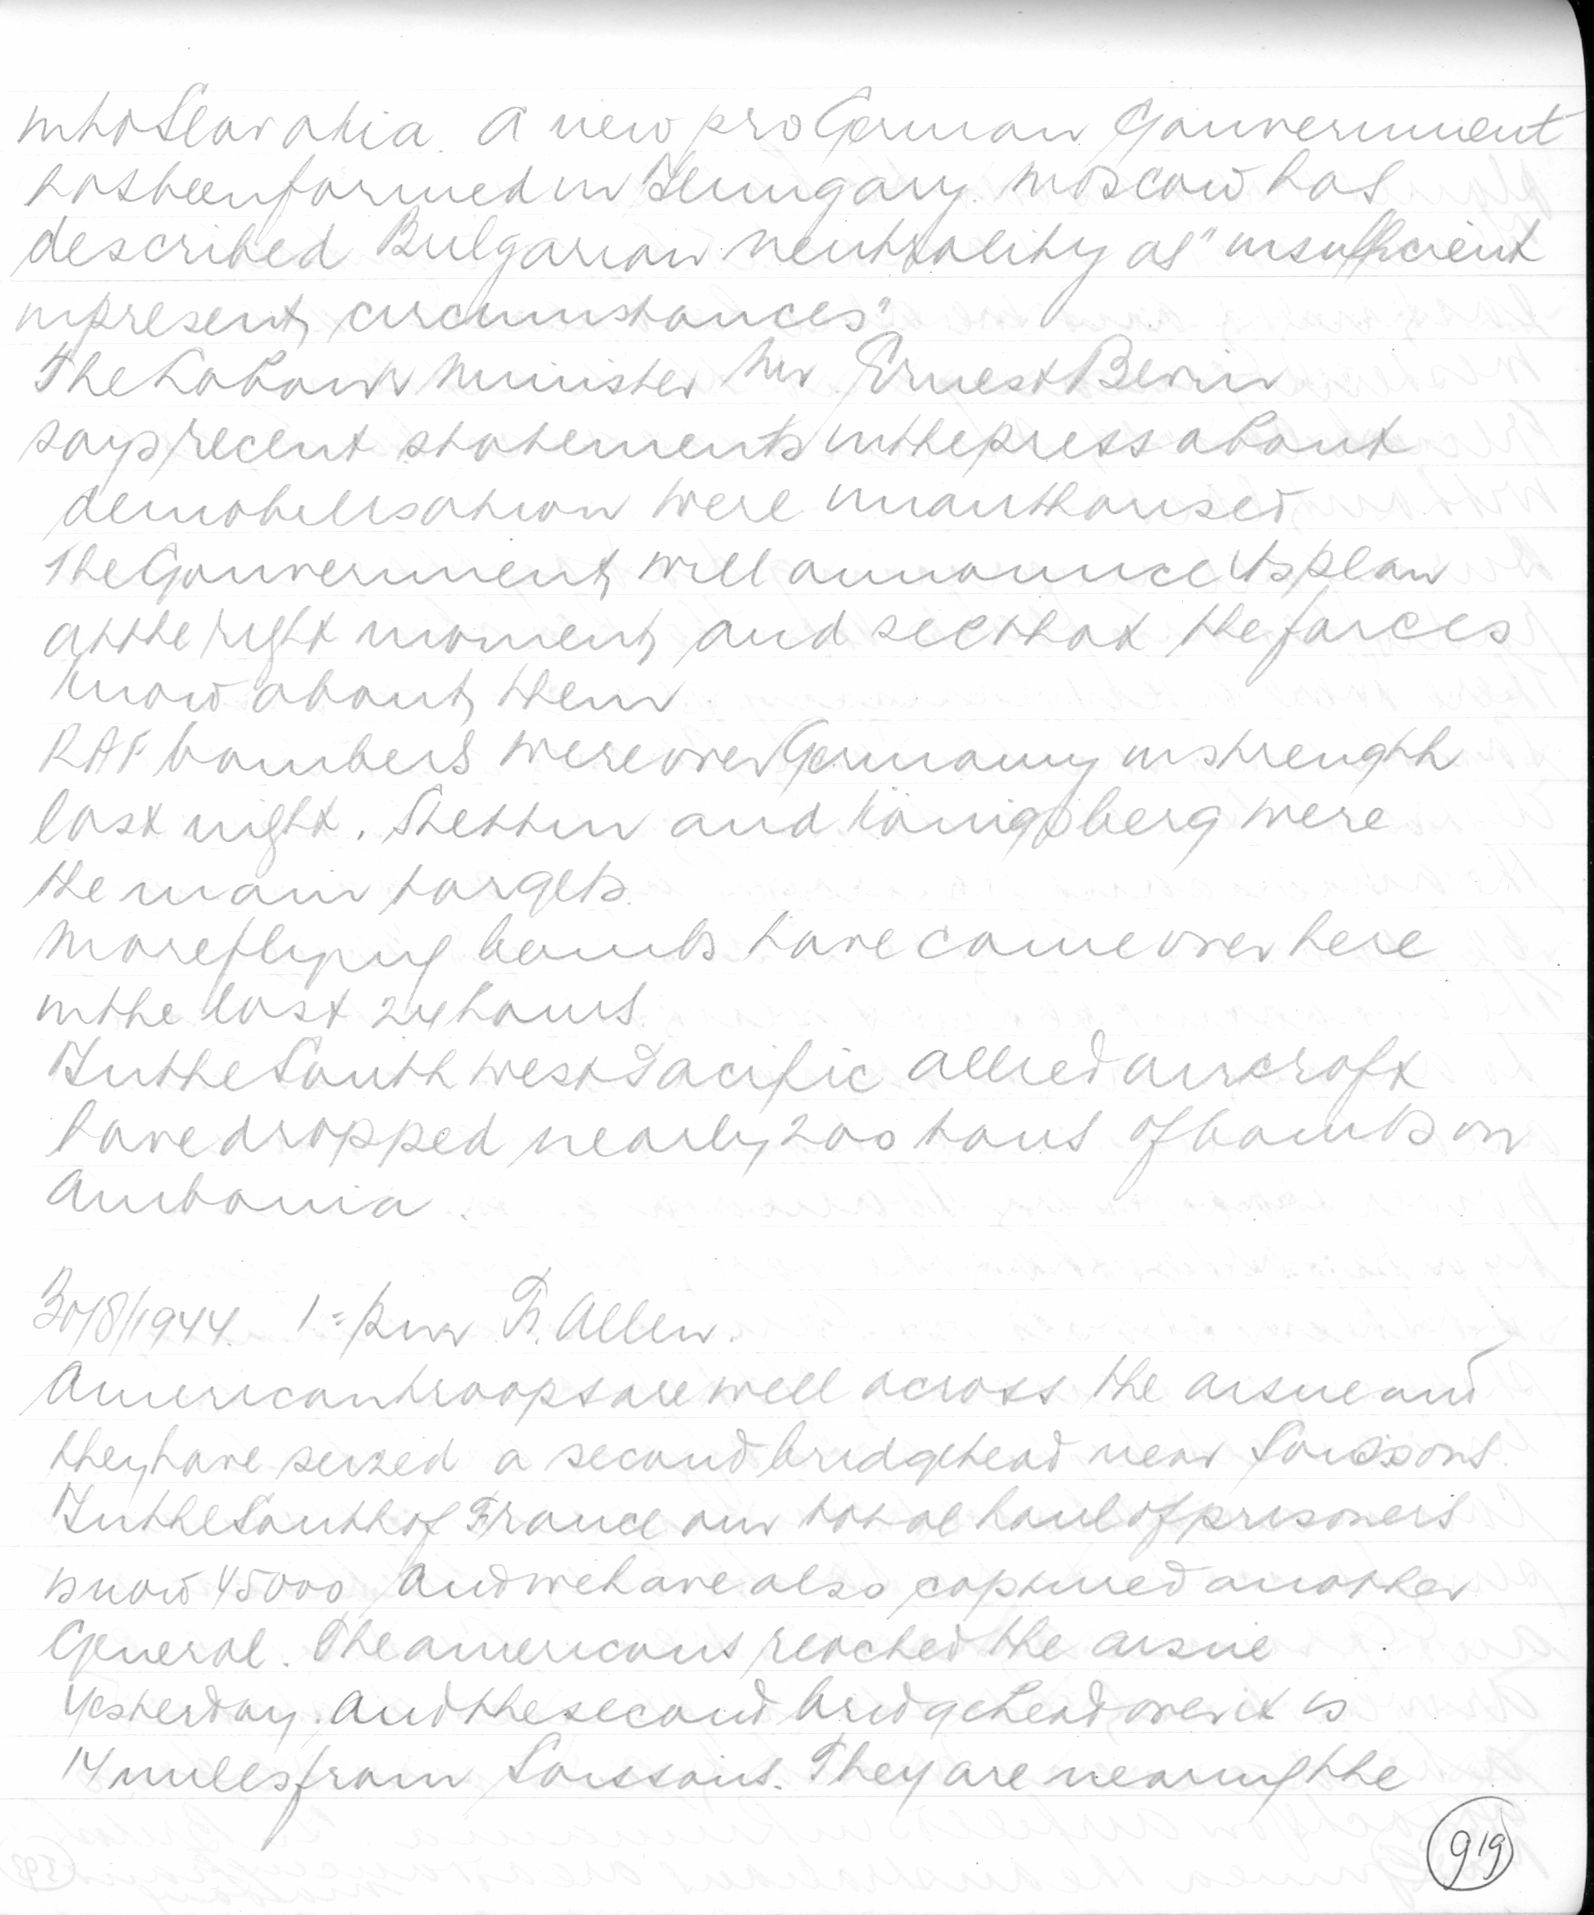 into Slovakia. A new pro German Gouvernment
has been formed in Hungary. Moscow has
described Bulgarian neutrality as "insufficient
in present circumstances".
The Labour Minister Mr Ernest Bevin
says recent statements in the press about
demobilisation were unauthorised
The Gouvernment will announce its plan
at the right moment and see that the forces
know about them
RAF bombers were over Germany in strength
last night. Stettin and Königsberg were
the main targets.
More flying bombs have come over here
in the last 24 hours
In the South West Pacific allied aircraft
have dropped nearly 200 tons of bombs on
Ambonia.
30/8/1944. 1= pm F. Allen.
American troops are well across the aisne and
they have seized a second bridgehead near Soissons.
In the South of France our total haul of prisoners
is now 45000 and we have also captured another
General. The americans reached the aisne
yesterday. And the second bridgehead over it is
14 miles from Soissons. They are nearing the
919